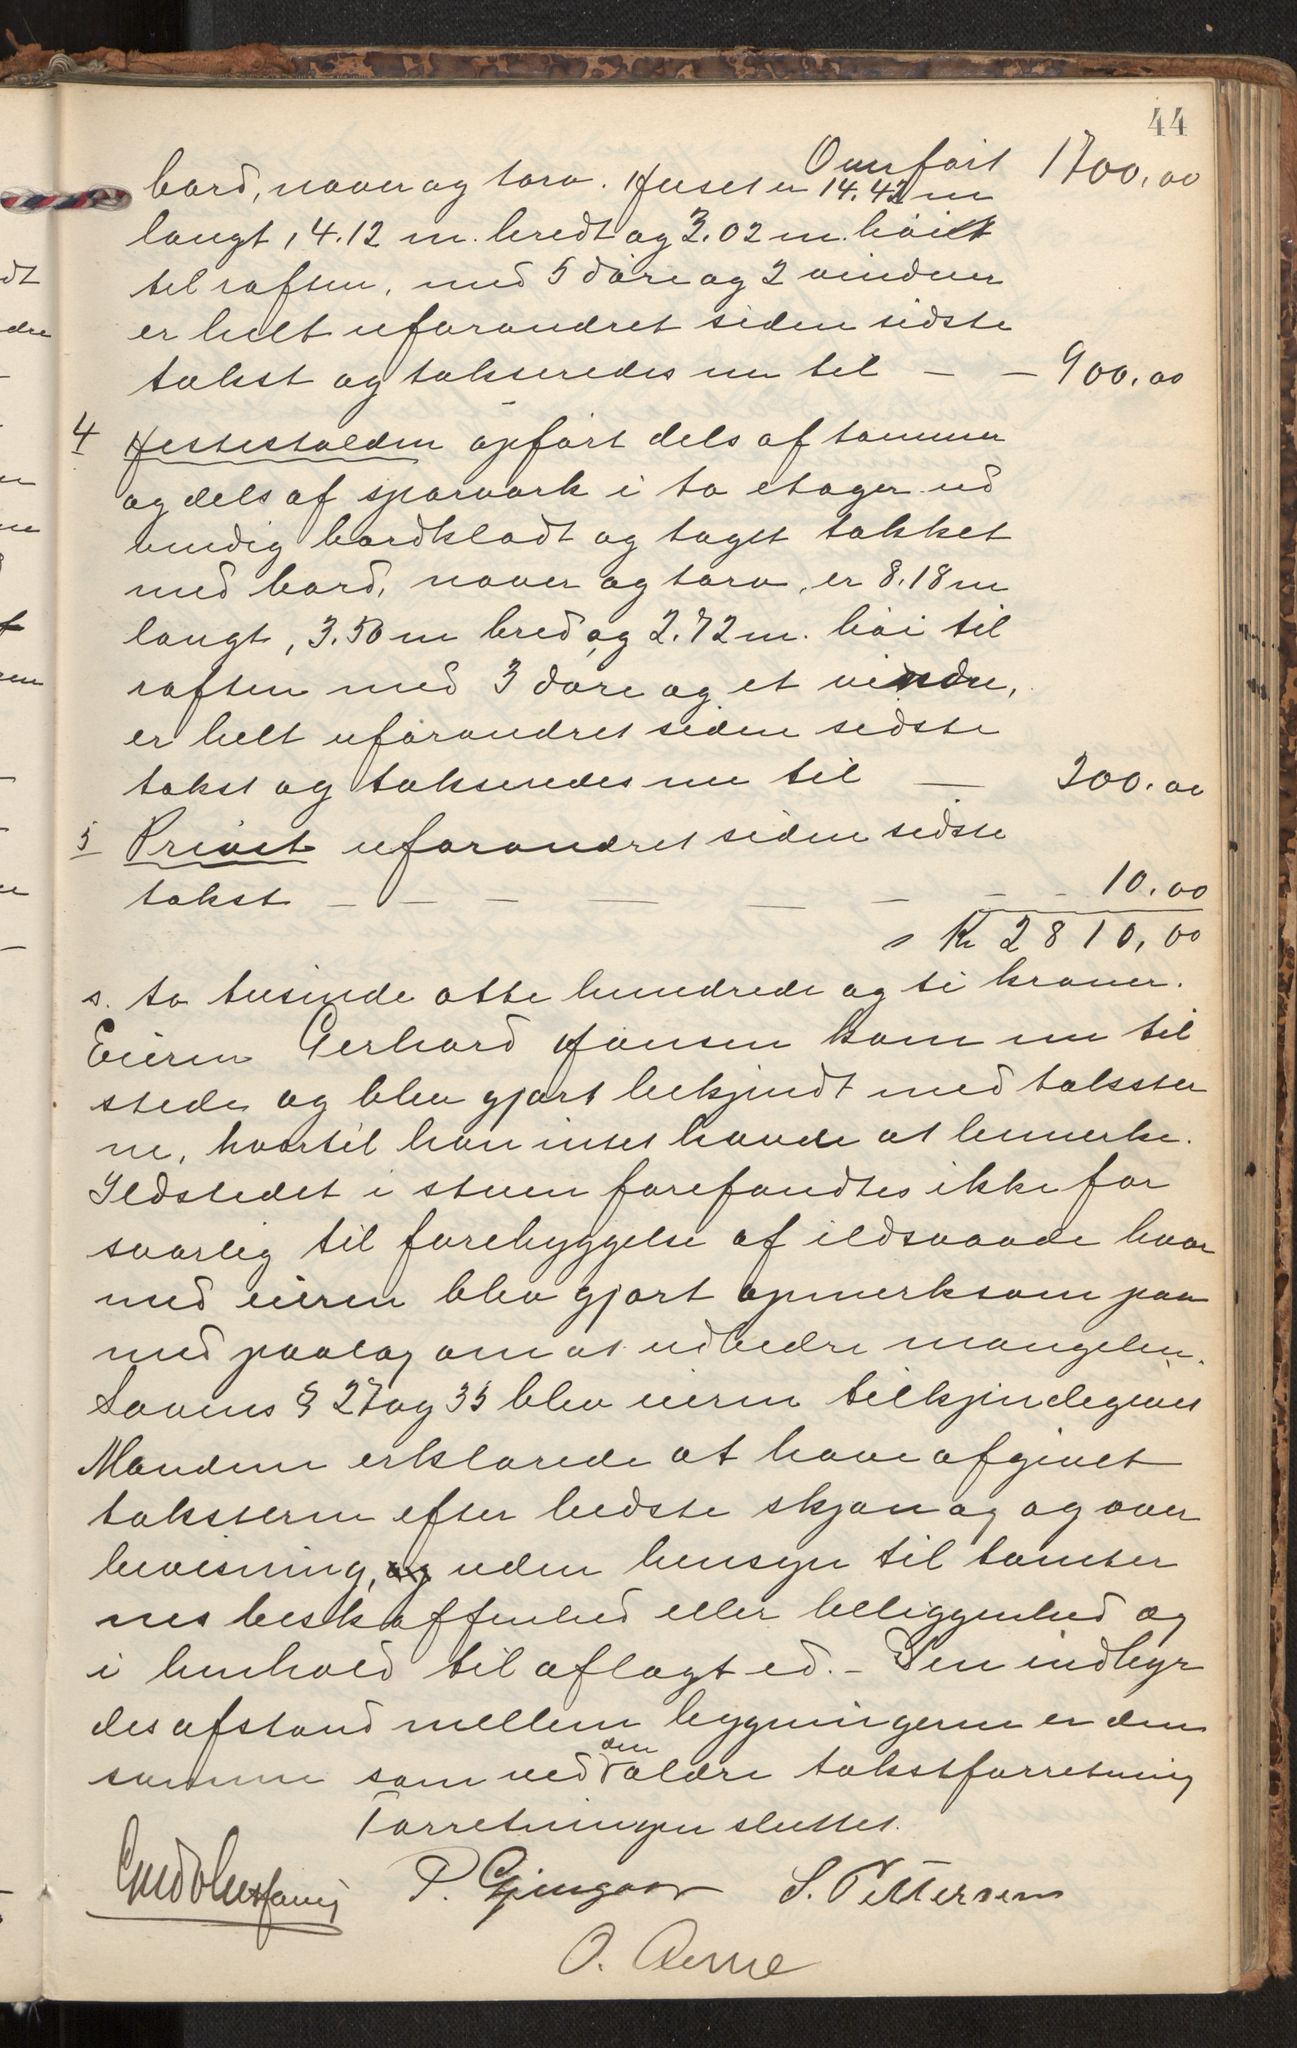 44
Overført 1700,00
bord, næver og torv. Huset er 14.42 m
langt, 4.12 m. bredt og 3.02 m. høit
til raften, med 5 døre og 2 vinduer
er helt uforandret siden sidste
takst og takseredes nu til — — 900,00
4 Hestestalden opført dels af tømmer
og dels af sparværk i to etager ud
vendig bordklædt og taget tækket
med bord, næver og torv, er 8.18 m
langt, 3.50 m bred og 2.72 m. høi til
raften med 3 døre og et vindu,
er helt uforandret siden sidste
takst og takseredes nu til — 200,00
5 Privet uforandret siden sidste
takst — — — — — — — 10,00
s Kr 2810,00
s. to tusinde otte hundrede og ti kroner.
Eieren Gerhard Hansen kom nu til
stede og blev gjort bekjendt med takster
ne, hvortil han intet havde at bemerke.
Ildstedet i stuen forefandtes ikke for
svarlig til forebyggelse af ildsvaade hvor
med eieren blev gjort opmerksom paa
med paalæg om at udbedre mangelen.
Lovens § 27 og 35 blev eieren tilkjendegivet
Mændene erklærede at have afgivet
taksterne efter bedste skjøn og og over
bevisning, og uden hensyn til tomter
nes beskaffenhed eller beliggenhed og
i henhold til aflagt ed. – Den indbyr
des afstand mellem bygningerne er den
samme som ved den ældre takstforretning
Forretningen sluttet.
P. Gjengaar S. Pettersen
O. Aerne